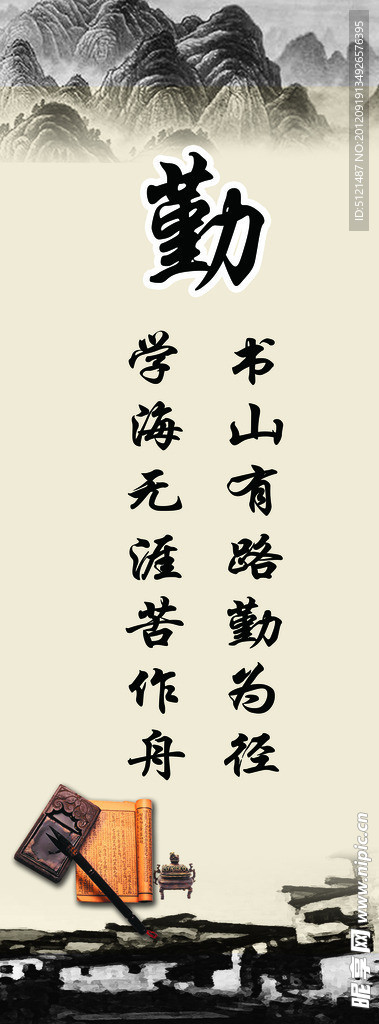 勤
书山有路勤为径
学海无涯苦作舟
ID:5121487 NO:20120919134926576395
昵享网 www.nipic.cn